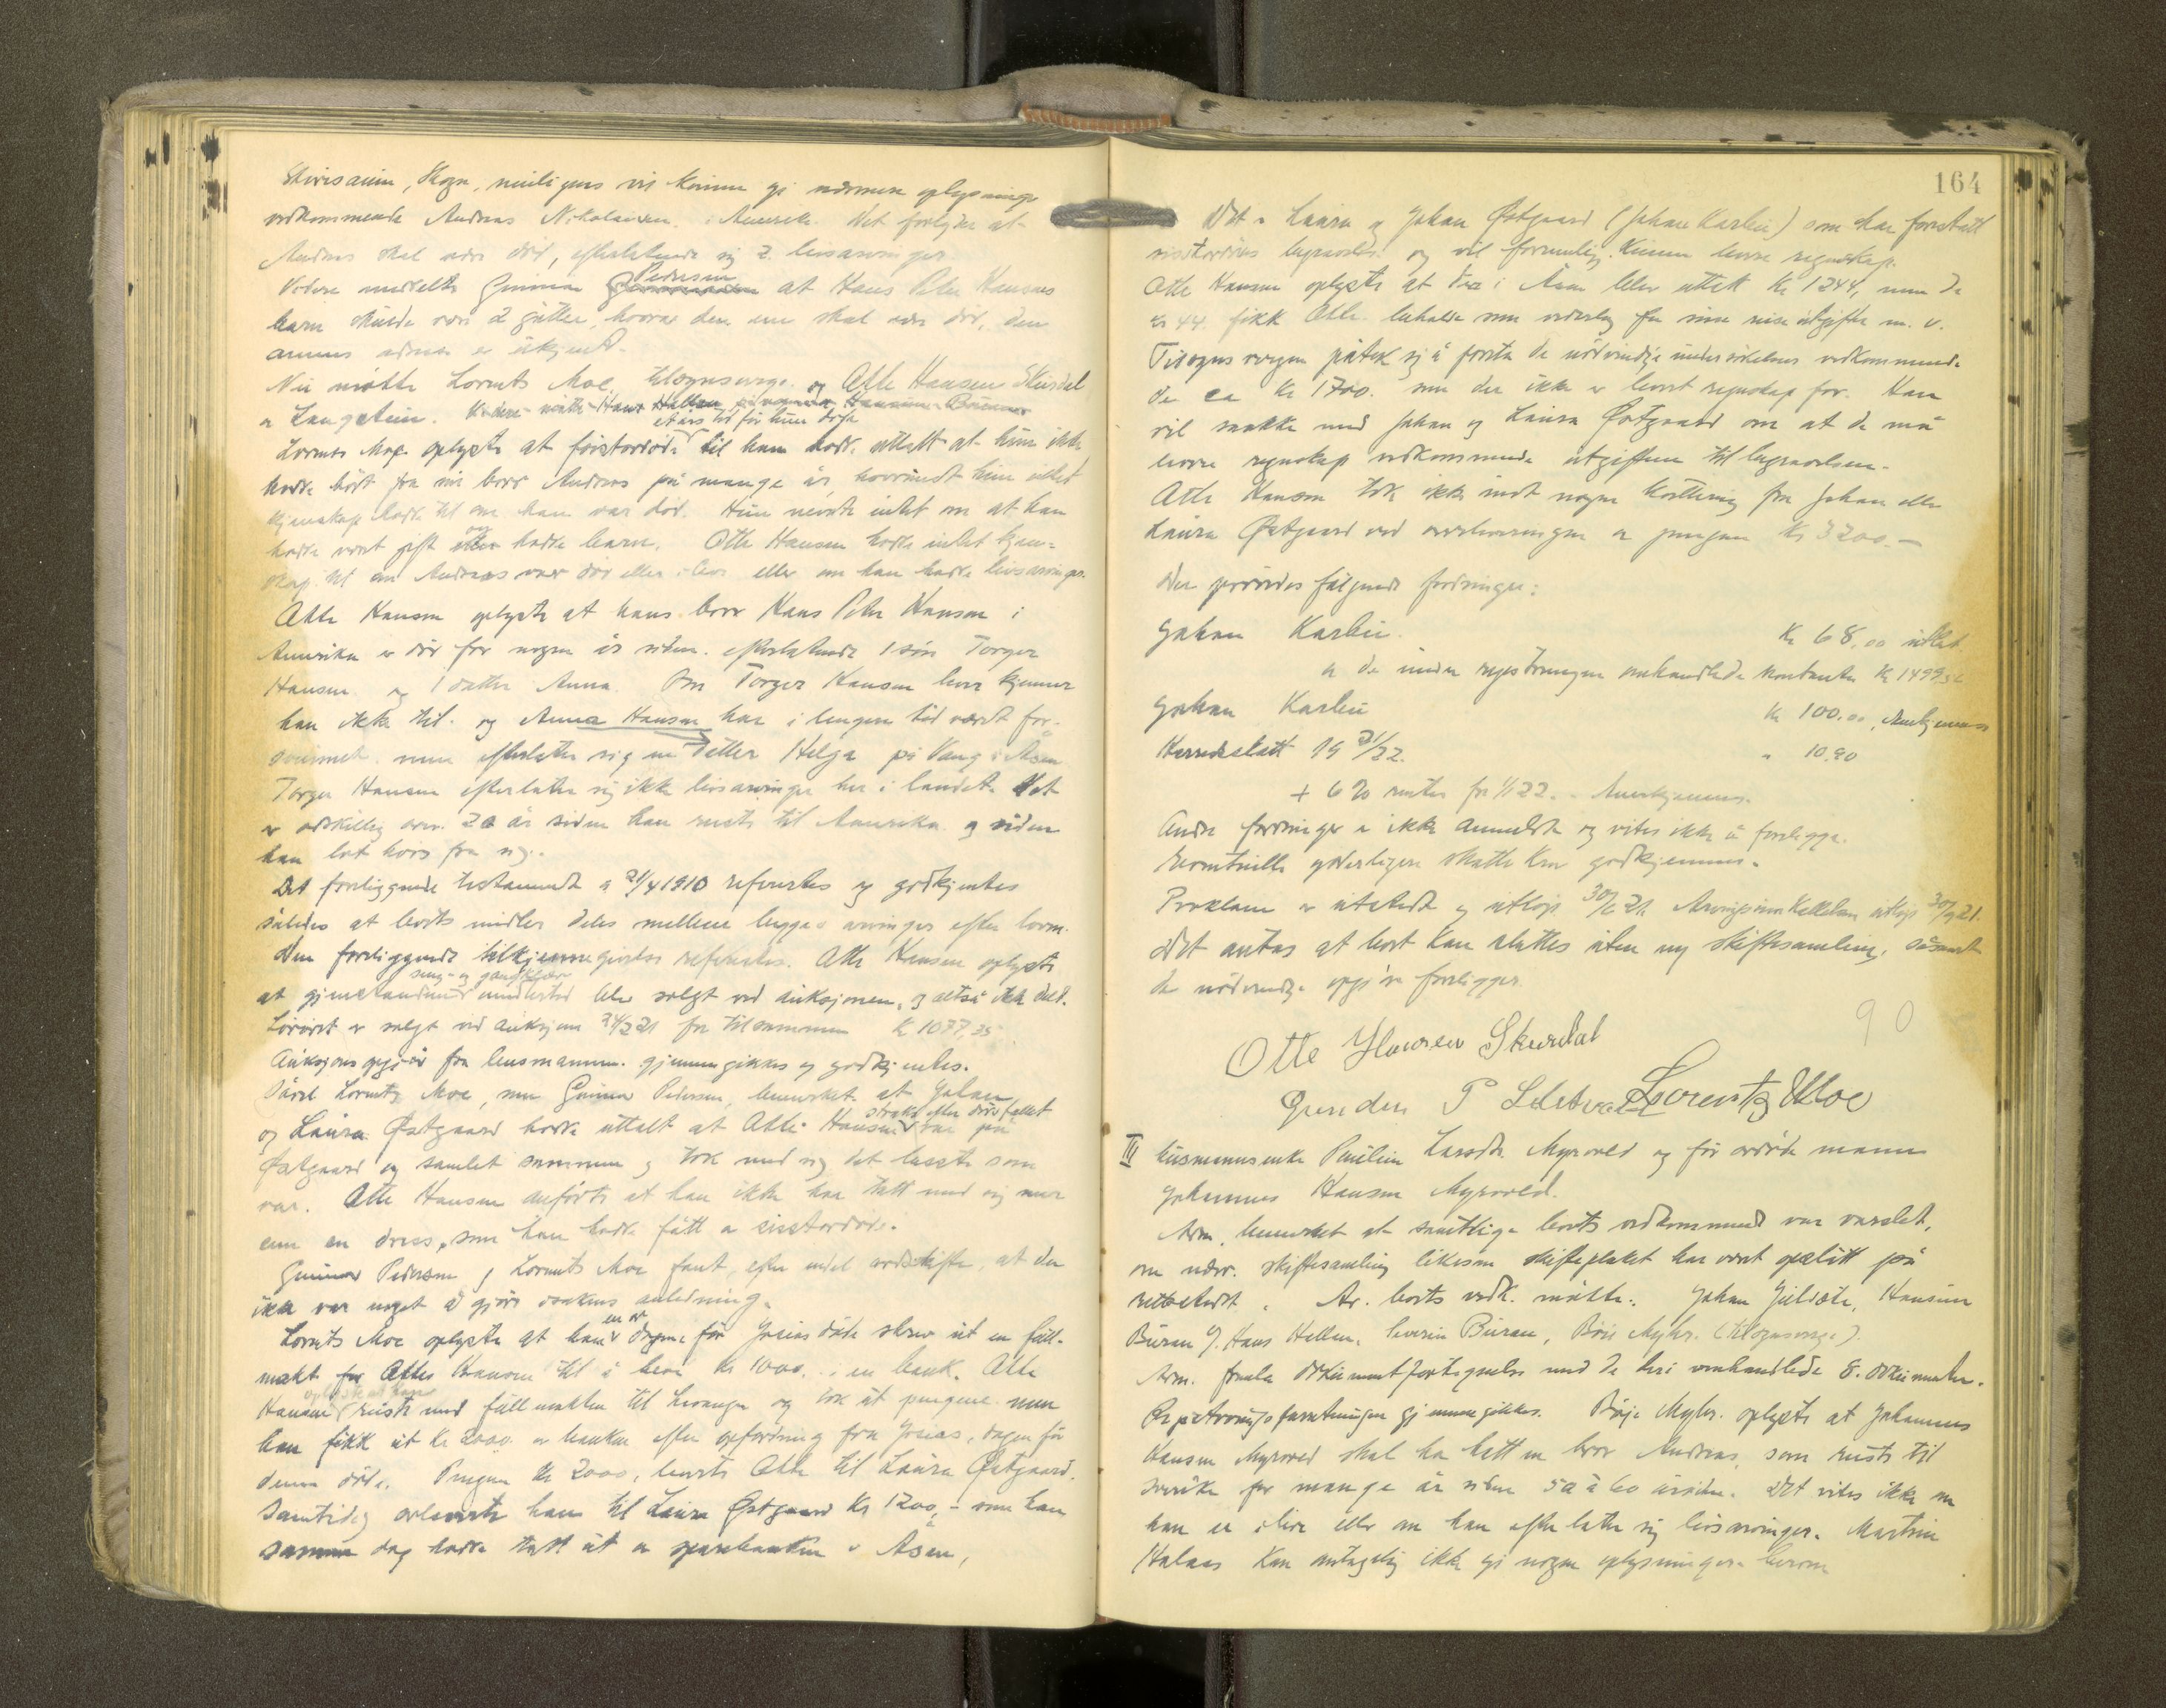 Skog, muligens vil kunne gi nærmere oplysninger
vedkommende Andreas Nikolaisen i Amerika. Det forlyder at
Andreas skal være död, efterlatende sig 2 livsarvinger.
Videre meddelte Gunnar Pedersen at Hans Peter Hansens
barn skulde være 2 gutter, hvorav den ene skal være död, den
annens adresse er ukjent.
Nu møtte Lornts Moe, tilsynsverge og Otte Hansen Skurdal
a Langstein. Videre møtte Hans Hallem
et års tid før hun döde
Lornts Moe oplyste at førstavdøde til ham hadde uttalt at hun ikke
hadde hørt fra sin bror Andreas på mange år, hvorvidt hun
kjenskap hadde til om han var död. Hun nevnte intet om at han
hadde vært gift og hadde barn. Otte Hansen hadde intet kjen-
skap til om Andreas var död eller i live eller om han hadde livsarvinger.
Otte Hansen oplyste at hans bror Hans Peter Hansen i
Amerika er död for nogen år siden efterlatende 1 sön Torger
Hansen og 1 datter Anna. Om Torger Hansen lever kjenner
han ikke til og Anna Hansen har i lengere tid været for-
svunnet men efterlater sig en datter Helga på Vang i Åsen
Torger Hansen efterlater sig ikke livsarvinger her i landet. Det
er adskillig over 20 år siden han reiste til Amerika og siden
han lot høre fra sig.
Det foreliggende testamente a 21/4 1910 refereertes og godkjentes
således at boets midler deles mellem begges arvinger efter loven.
Den foreliggende tilkjennegivelse refereertes. Otte Hansen oplyste
seng- og gangklær
at gjenstandene blev solgt ved auksjonen, og altså ikke delt.
Løsøret er solgt ved auksjon 24/2 21 for tilsammen kr 1077,35
Auksjonsopgjør fra lensmannen gjennemgikkes og godkjentes.
Såvel Lornts Moe, som Gunnar Pedersen, bemerket at Johan
straks efter dödsfallet
og Laura Østgaard hadde uttalt at Otte Hansen var på
Østgaard og samlet sammen og tok med sig det beste som
var. Otte Hansen anförte at han ikke har tatt med sig mer
enn en dress, som han hadde fått a sistavdøde.
Gunnar Pedersen og Lornts Moe fant, efter endel ordskifte, at der
ikke var noget å gjöre i sakens anledning.
Lornts Moe oplyste at han en av dagene før Josias döde skrev ut en full-
makt for Otte Hansen til å heve kr 1000. i en bank. Otte
oplyste at han
Hansen reiste med fullmakten til Levanger og tok ut pengene men
han fikk ut kr 2000 a banken efter opfordring fra Josias, dagen før
denne döde. Pengene kr 2000, leverte Otte til Laura Østgaard.
Samtidig overleverte han til Laura Østgaard kr 1200,- som han
samme dag hadde tatt ut a sparebanken i Åsen,
164
Det er Laura og Johan Østgaard (Johan Karlen) som har forestått
sistavdødes begravelse og vil formentlig kunne levere regnskap.
Otte Hansen oplyste at der i Åsen blev uttatt kr 1244, men de
kr 44 fikk Otte beholde som vederlag for sine reiseutgifter m. v.
Tilsynsvergen påtok sig å foreta de nødvendige undersøkelser vedkommende
de ca kr 1700. som der ikke er levert regnskap for. Han
vil snakke med Johan og Laura Østgaard om at de må
levere regnskap vedkommende utgiftene til begravelsen.
Otte Hansen tok ikke imot nogen kvittering fra Johan eller
Laura Østgaard ved overleveringen a pengene kr 3200.-
Der prövedes fölgende fordringer:
Johan Karlen. kr 68,00 utbet.
a de under registreringen omhandlede kontanter kr 1499
Johan Karlen kr 100,00, Anerkjennes
Herredsskatt 19 21/22. " 10,90
+ 6% renter fra 1/1 22. - Anerkjennes.
Andre fordringer er ikke anmeldt og vites ikke å foreligge.
Eventuelle yderligere skattekrav godkjennes.
Proklama er utstedt og utløpt 30/6 21. Arvinginnkallelsen utløpt 30/9 21.
Det antas at boet kan sluttes uten ny skiftesamling, såsnart
de nödvendige opgaver foreligger.
90
Otte Hansen Skurdal
P Lorents Moe
III Husmannsenke Pauline Larsdtr. Myrvold og før avdøde mann
Johannes Hansen Myrvold.
Adm. bemerket at samtlige boets vedkommende var varslet,
om nærv. skiftesamling likesom skifteplakat har vært opslått på
rettstedet. Av boets vedk. møtte: Johan Julsæte, Hansine
Buran v/ Hans Hellem, Severin Buran, Böie Myhr. (tilsynsverge).
Adm. fremla dokumentfortegnelse med de heri omhandlede 8. dokumenter.
Registreringsforretningen gjennemgikkes. Böje Myhr. oplyste at Johannes
Hansen Myrvold skal ha hatt en bror Andreas, som reiste til
Sverike for mange år siden 50 à 60 år siden. Det vites ikke om
han er i live eller om han efterlater sig livsarvinger. Martin
Halaas kan antagelig ikke gi nogen oplysninger herom